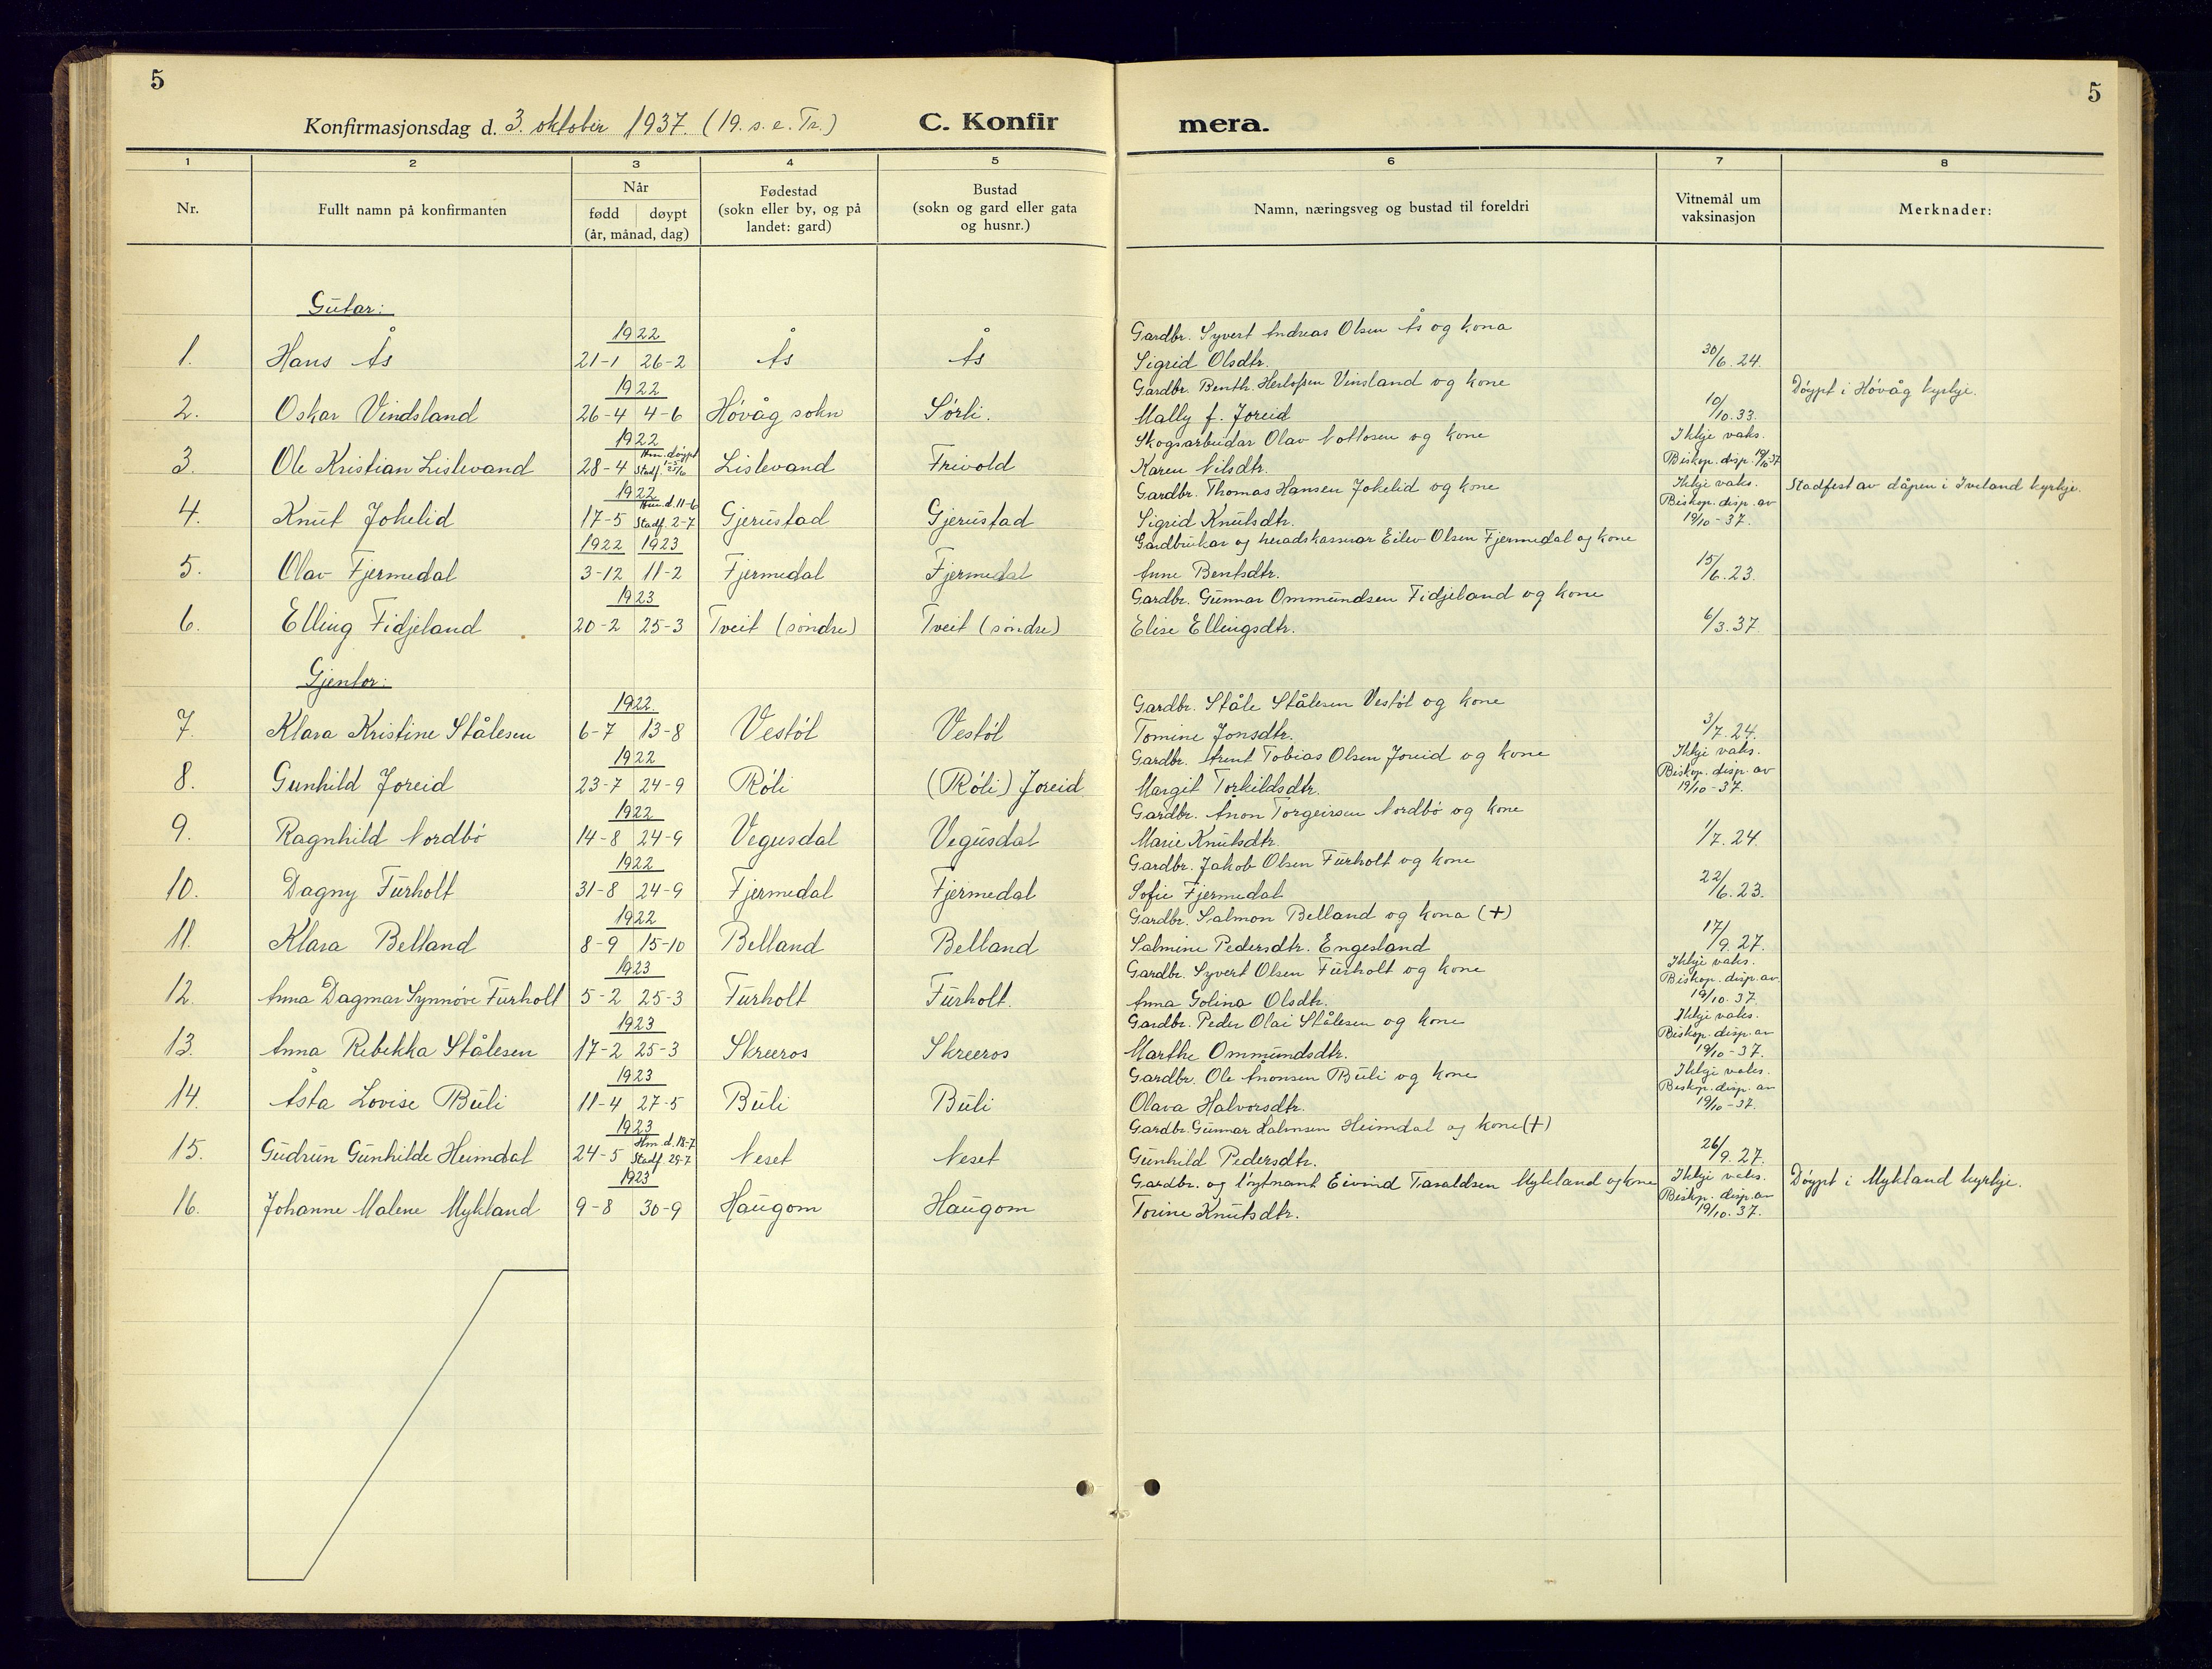 5
5
Konfirmasjonsdag d. 3. oktober 1937. (19. s. e. Tr.)
C. Konfir
mera.
1 2 3 4 5 6 7 8
Nr.
Fullt namn på konfirmanten
Når
fødd døypt
(år, månad, dag)
Fødestad
(sokn eller by, og på
landet: gard)
Bustad
(sokn og gard eller gata
og husnr.)
Namn, næringsveg og bustad til foreldri
Vitnemål um
vaksinasjon
Merknader:
Gutar:
1922 Gardbr. Syvert Andreas Olsen Ås og kona
1. Hans Ås 21-1 26-2 Ås Ås Sigrid Olsdtr. 30/6.24.
1922 Gardbr. Benth. Herlofsen Vinsland og kone Døypt i Høvåg kyrkje.
2. Oskar Vindsland 26-4 4-6 Høvåg sokn Sørli. Mally f. Joreid 10/10.33.
1922 Skogsarbeidar Olav Nottosen og kone Ikkje vaks.
Hm. døypt
3. Ole Kristian Lislevand 28-4 Stadf. Lislevand Frivold Karen Nilsdtr. Biskop. disp. 19/10-37
1922 Gardbr. Thomas Hansen Jokelid og kone Ikkje vaks. Stadfest av dåpen i Iveland kyrkje.
Hm. d. 11-6 Biskop. disp. av
4. Knut Jokelid 17-5 Stadf. 2-7 Gjerustad Gjerustad Sigrid Knutsdtr. 19/10-37.
1922 1923 Gardbrukar og heradskasserar Eilev Olsen Fjermedal og kone
5. Olav Fjermedal 3-12 11-2 Fjermedal Fjermedal Anne Bentsdtr. 15/6.23.
1923 Gardbr. Gunnar Ommundsen Fidjeland og kone
6. Elling Fidjeland 20-2 25-3 Tveit (søndre) Tveit (søndre) Elise Ellingsdtr. 6/3.37.
Gjentor:
1922. Gardbr. Ståle Stålesen Vestøl og kone
7. Klara Kristine Stålesen 6-7 13-8 Vestøl Vestøl Tomine Jonsdtr. 3/7.24.
1922 Gardbr. Arent Tobias Olsen Joreid og kone Ikkje vaks.
Biskop. disp. av
8. Gunhild Joreid 23-7 24-9 Røli (Røli) Joreid Margit Torkildsdtr. 19/10-37.
1922 Gardbr. Ånon Torgeirsen Nordbø og kone
9. Ragnhild Nordbø 14-8 24-9 Vegusdal Vegusdal Marie Knutsdtr. 1/7.24.
1922 Gardbr. Jakob Olsen Furholt og kone
10. Dagny Furholt 31-8 24-9 Fjermedal Fjermedal Sofie Fjermedal 22/6.23.
1922 Gardbr. Salmon Belland og kona (+)
11. Klara Belland 8-9 15-10 Belland Belland Salmine Pedersdtr. Engesland 17/9.27.
1923 Gardbr. Syvert Olsen Furholt og kone Ikkje vaks.
Biskop. disp. av.
12. Anna Dagmar Synnøve Furholt 5-2 25-3 Furholt Furholt. Anna Golina Olsdtr. 19/10.37.
1923 Gardbr. Peder Olai Stålesen og kone Ikkje vaks.
Biskop. disp. av
13. Anna Rebekka Stålesen 17-2 25-3 Skreeros Skreeros Marthe Ommundsdtr. 19/10-37.
1923 Gardbr. Ole Ånonsen Buli og kone Ikkje vaks.
Biskop. disp. av
14. Åsta Lovise Buli 11-4 27-5 Buli Buli Olava Halvorsdtr. 19/10-37.
1923 Gardbr. Gunnar Salmsen Heimdal og kone (+)
Hm. d. 18-7
15. Gudrun Gunhilde Heimdal 24-5 Stadf. 29-7 Neset Neset Gunhild Pedersdtr. 26/9.27.
1923 Gardbr. og løytnant Eivind Taraldsen Mykland og kone Ikkje vaks. Døypt i Mykland kyrkje.
Biskop. disp. av
16. Johanne Malene Mykland 9-8 30-9 Haugom Haugom Torine Knutsdtr. 19/10.37.